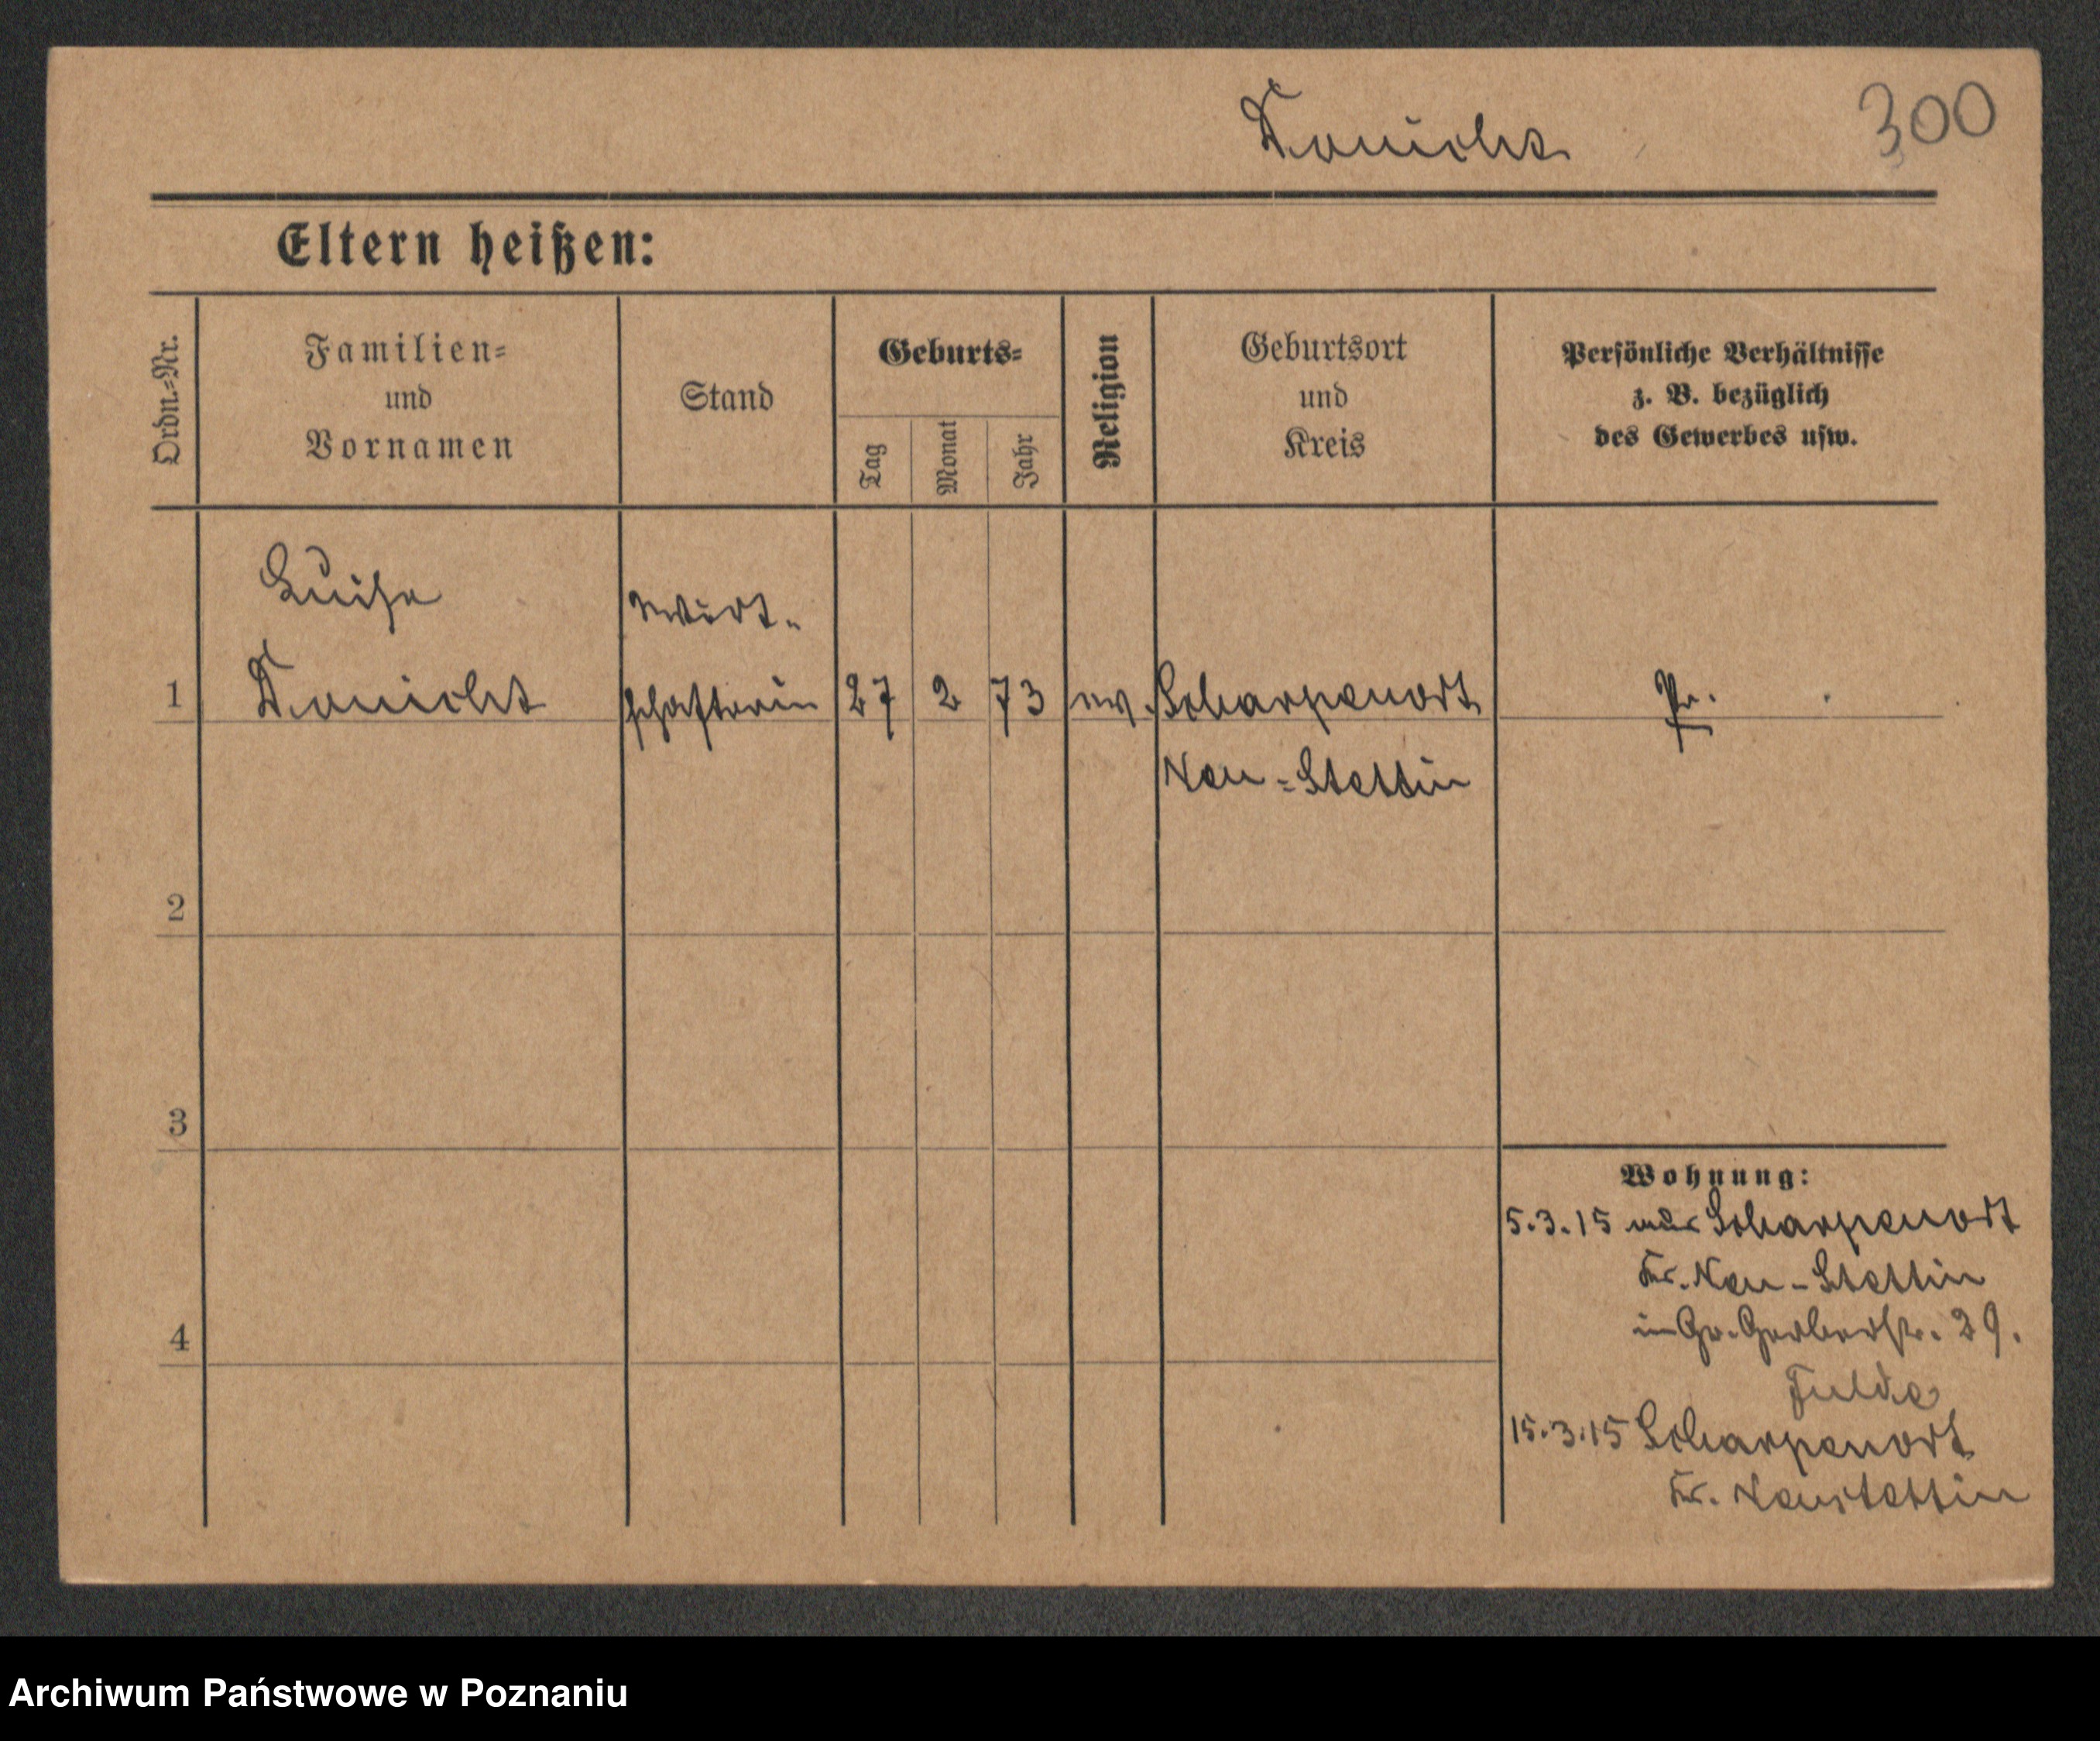 300
Eltern heißen:
Ordn.=Nr.
Familien=
und
Vornamen
Stand
Geburts=
Tag
Monat
Jahr
Religion
Geburtsort
und
Kreis
Persönliche Verhältnisse
z. B. bezüglich
des Gewerbes usw.
Luise
Wirt-
1
schafterin
27
2
73
ev.
Scharpenort
Pr.
Neu=Stettin
2
3
4
Wohnung:
5.3.15 aus Scharpenort
Kr. Neu-Stettin
in Gr. Gerberstr. 29.
Fulde
15.3.15 Scharpenort
Kr. Neustettin
Archiwum Państwowe w Poznaniu